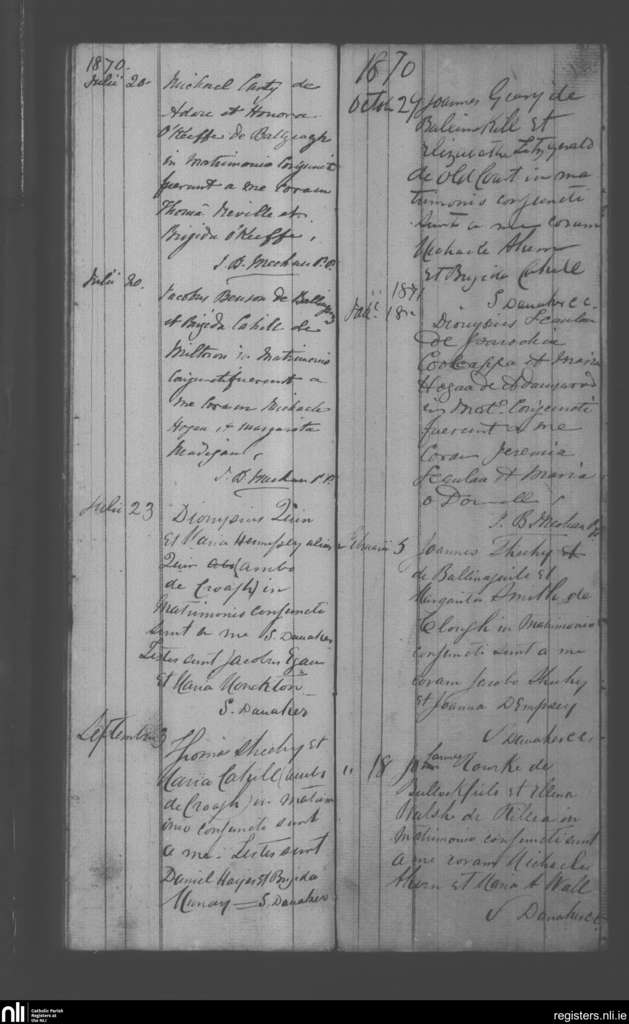 1870.
Julii 20 Michael Casty de
Adare et Honora
O'Keeffe de
in Matrimonio Conjuncti
fuerunt a me coram
Thomâ Neville et
Brigida O'Keeffe.
J. B. Meehan P.P.
Julii 20. Jacobus Benson de
et Brigida Cahill de
in Matrimonio
Conjuncti fuerunt a
me Coram Michaele
Hogan et Margarita
Madigan.
J. B. Meehan P.P.
Julii 23 Dionysius Quin
et Maria Hennessy alias
Quin (ambo
de Croagh) in
Matrimonio conjuncti
sunt a me S. Danaher
Testes sunt Jacobus Egan
et Maria Monckton
S. Danaher
Septembris 3 Thomas Sheehy et
Maria Cahill (ambo
de Croagh) in Matrim
onio conjuncti sunt
a me. Testes sunt
Daniel Hayes et Brigida
Murray — S. Danaher
1870
Octob 29 Joannes Geary de
et
Elizabetha Fitzgerald
de Old Court in ma
trimonio conjuncti
sunt a me coram
Michaele Ahern
et Brigida Cahill
S. Danaher C.C.
1871
18 Dionysius Scanlan
de Parochia
Coolcappa et Maria
Hogan de
in Mat. Conjuncti
fuerunt a me
Coram Jeremia
Scanlan et Maria
O'Donnell
J. B. Meehan P.P.
Februarii 5 Joannes Sheehy
de et
Margarita Smith de
Clough in Matrimonio
conjuncti sunt a me
coram Jacobo Sheehy
et Joanna Dempsey
S. Danaher C.C.
" 18 Joannes Rourke de
et Ellena
Walsh de in
Matrimonio conjuncti sunt
a me coram Michaele
Ahern et Maria A Wall
S. Danaher C.C.
nli Catholic Parish
Registers at
the NLI
registers.nli.ie